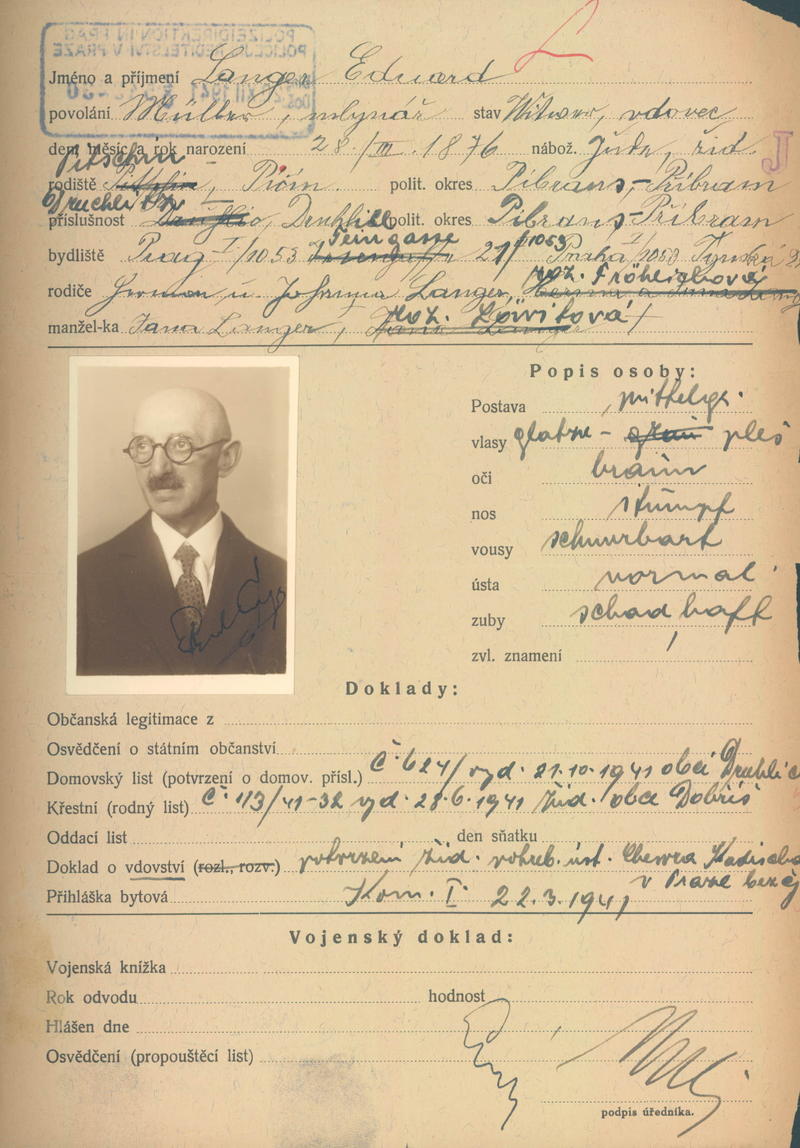 POLIZEIDIREKTION IN PRAG
POLICEJNÍ ŘEDITELSTVÍ V PRAZE
Jméno a příjmení Langer Eduard
povolání Müller, mlynář stav Witwer, vdovec
den, měsíc a rok narození 28/III. 1876 nábož. Jude, žid.
J
Pitschin
rodiště , Pičín. polit. okres Pibrans,-Příbram
Druchlitz
příslušnost , Druhlice polit. okres Pibrans-Příbram
Teingasse 1053
bydliště Prag I/1053 21/ Praha I/1053 Týnská 21
roz. Fröhlichová
rodiče Herman u Johanna Langer,
manžel-ka Jana Langer, roz. Löwitová
Popis osoby:
Postava mittelgr.
vlasy glatze - pleš
oči braun
nos stumpf
vousy schnurbart
ústa normal
zuby schadhaft
zvl. znamení /
Doklady:
Občanská legitimace z
Osvědčení o státním občanství
Domovský list (potvrzení o domov. přísl.) č. 624/ vyd. 21.10.1941 obcí Druhlic
Křestní (rodný list) č. 113/41-32 vyd. 28.6.1941 žid. obcí Dobříš
Oddací list den sňatku
Doklad o vdovství (rozl., rozv.) potvrzení žid. pohřeb. úst. Chewra Kadischa
v Praze bez čj
Přihláška bytová Kom. I. 22.3.1941
Vojenský doklad:
Vojenská knížka
Rok odvodu hodnost
Hlášen dne
Osvědčení (propouštěcí list)
podpis úředníka.